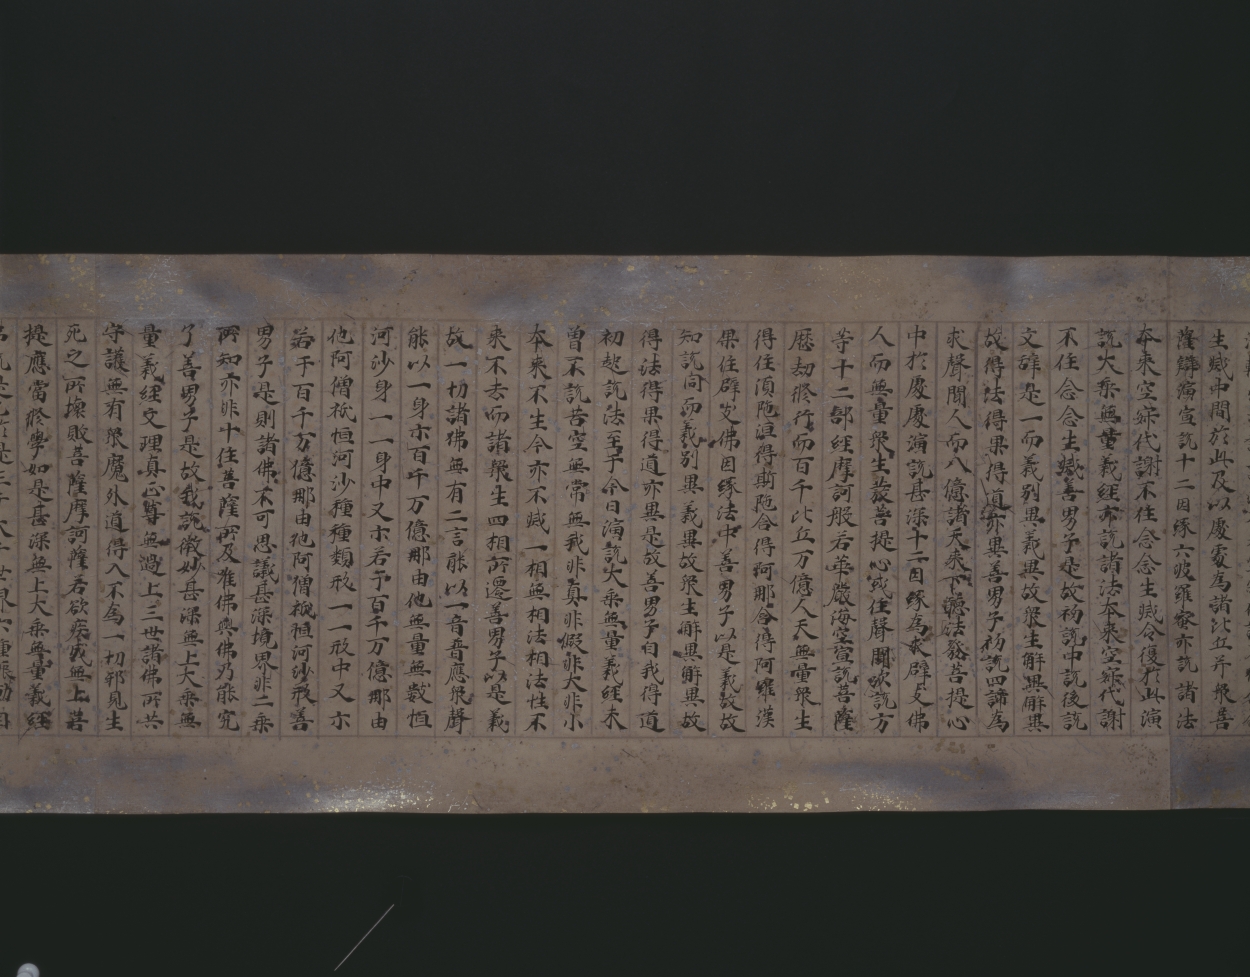 生滅中間於此及以處處為諸比丘并眾菩
薩辯演宣說十二因緣六波羅蜜亦說諸法
本來空寂代謝不住念念生滅今復於此演
說大乘無量義經亦說諸法本來空寂代謝
不住念念生滅善男子是故初說中說後說
文辭是一而義別異義異故眾生解異解異
故得法得果得道亦異善男子初說四諦為
求聲聞人而八億諸天來下聽法發菩提心
中於處處演說甚深十二因緣為求辟支佛
人而無量眾生發菩提心或住聲聞次說方
等十二部經摩訶般若華嚴海空宣說菩薩
歷劫修行而百千比丘万億人天無量眾生
得住須陀洹得斯陀含得阿那含得阿羅漢
果住辟支佛因緣法中善男子以是義故故
知說同而義別異義異故眾生解異解異故
得法得果得道亦異是故善男子自我得道
初起說法至于今日演說大乘無量義經未
曾不說苦空無常無我非真非假非大非小
本來不生今亦不滅一相無相法相法性不
來不去而諸眾生四相所遷善男子以是義
故一切諸佛無有二言能以一音普應眾聲
能以一身示百千万億那由他無量無數恒
河沙身一一身中又示若干百千万億那由
他阿僧祇恒河沙種種類形一一形中又示
若干百千万億那由他阿僧祇恒河沙形善
男子是則諸佛不可思議甚深境界非二乘
所知亦非十住菩薩所及唯佛與佛乃能究
了善男子是故我說微妙甚深無上大乘無
量義經文理真正尊無過上三世諸佛所共
守護無有眾魔外道得入不為一切邪見生
死之所壞敗菩薩摩訶薩若欲疾成無上菩
提應當修學如是甚深無上大乘無量義經